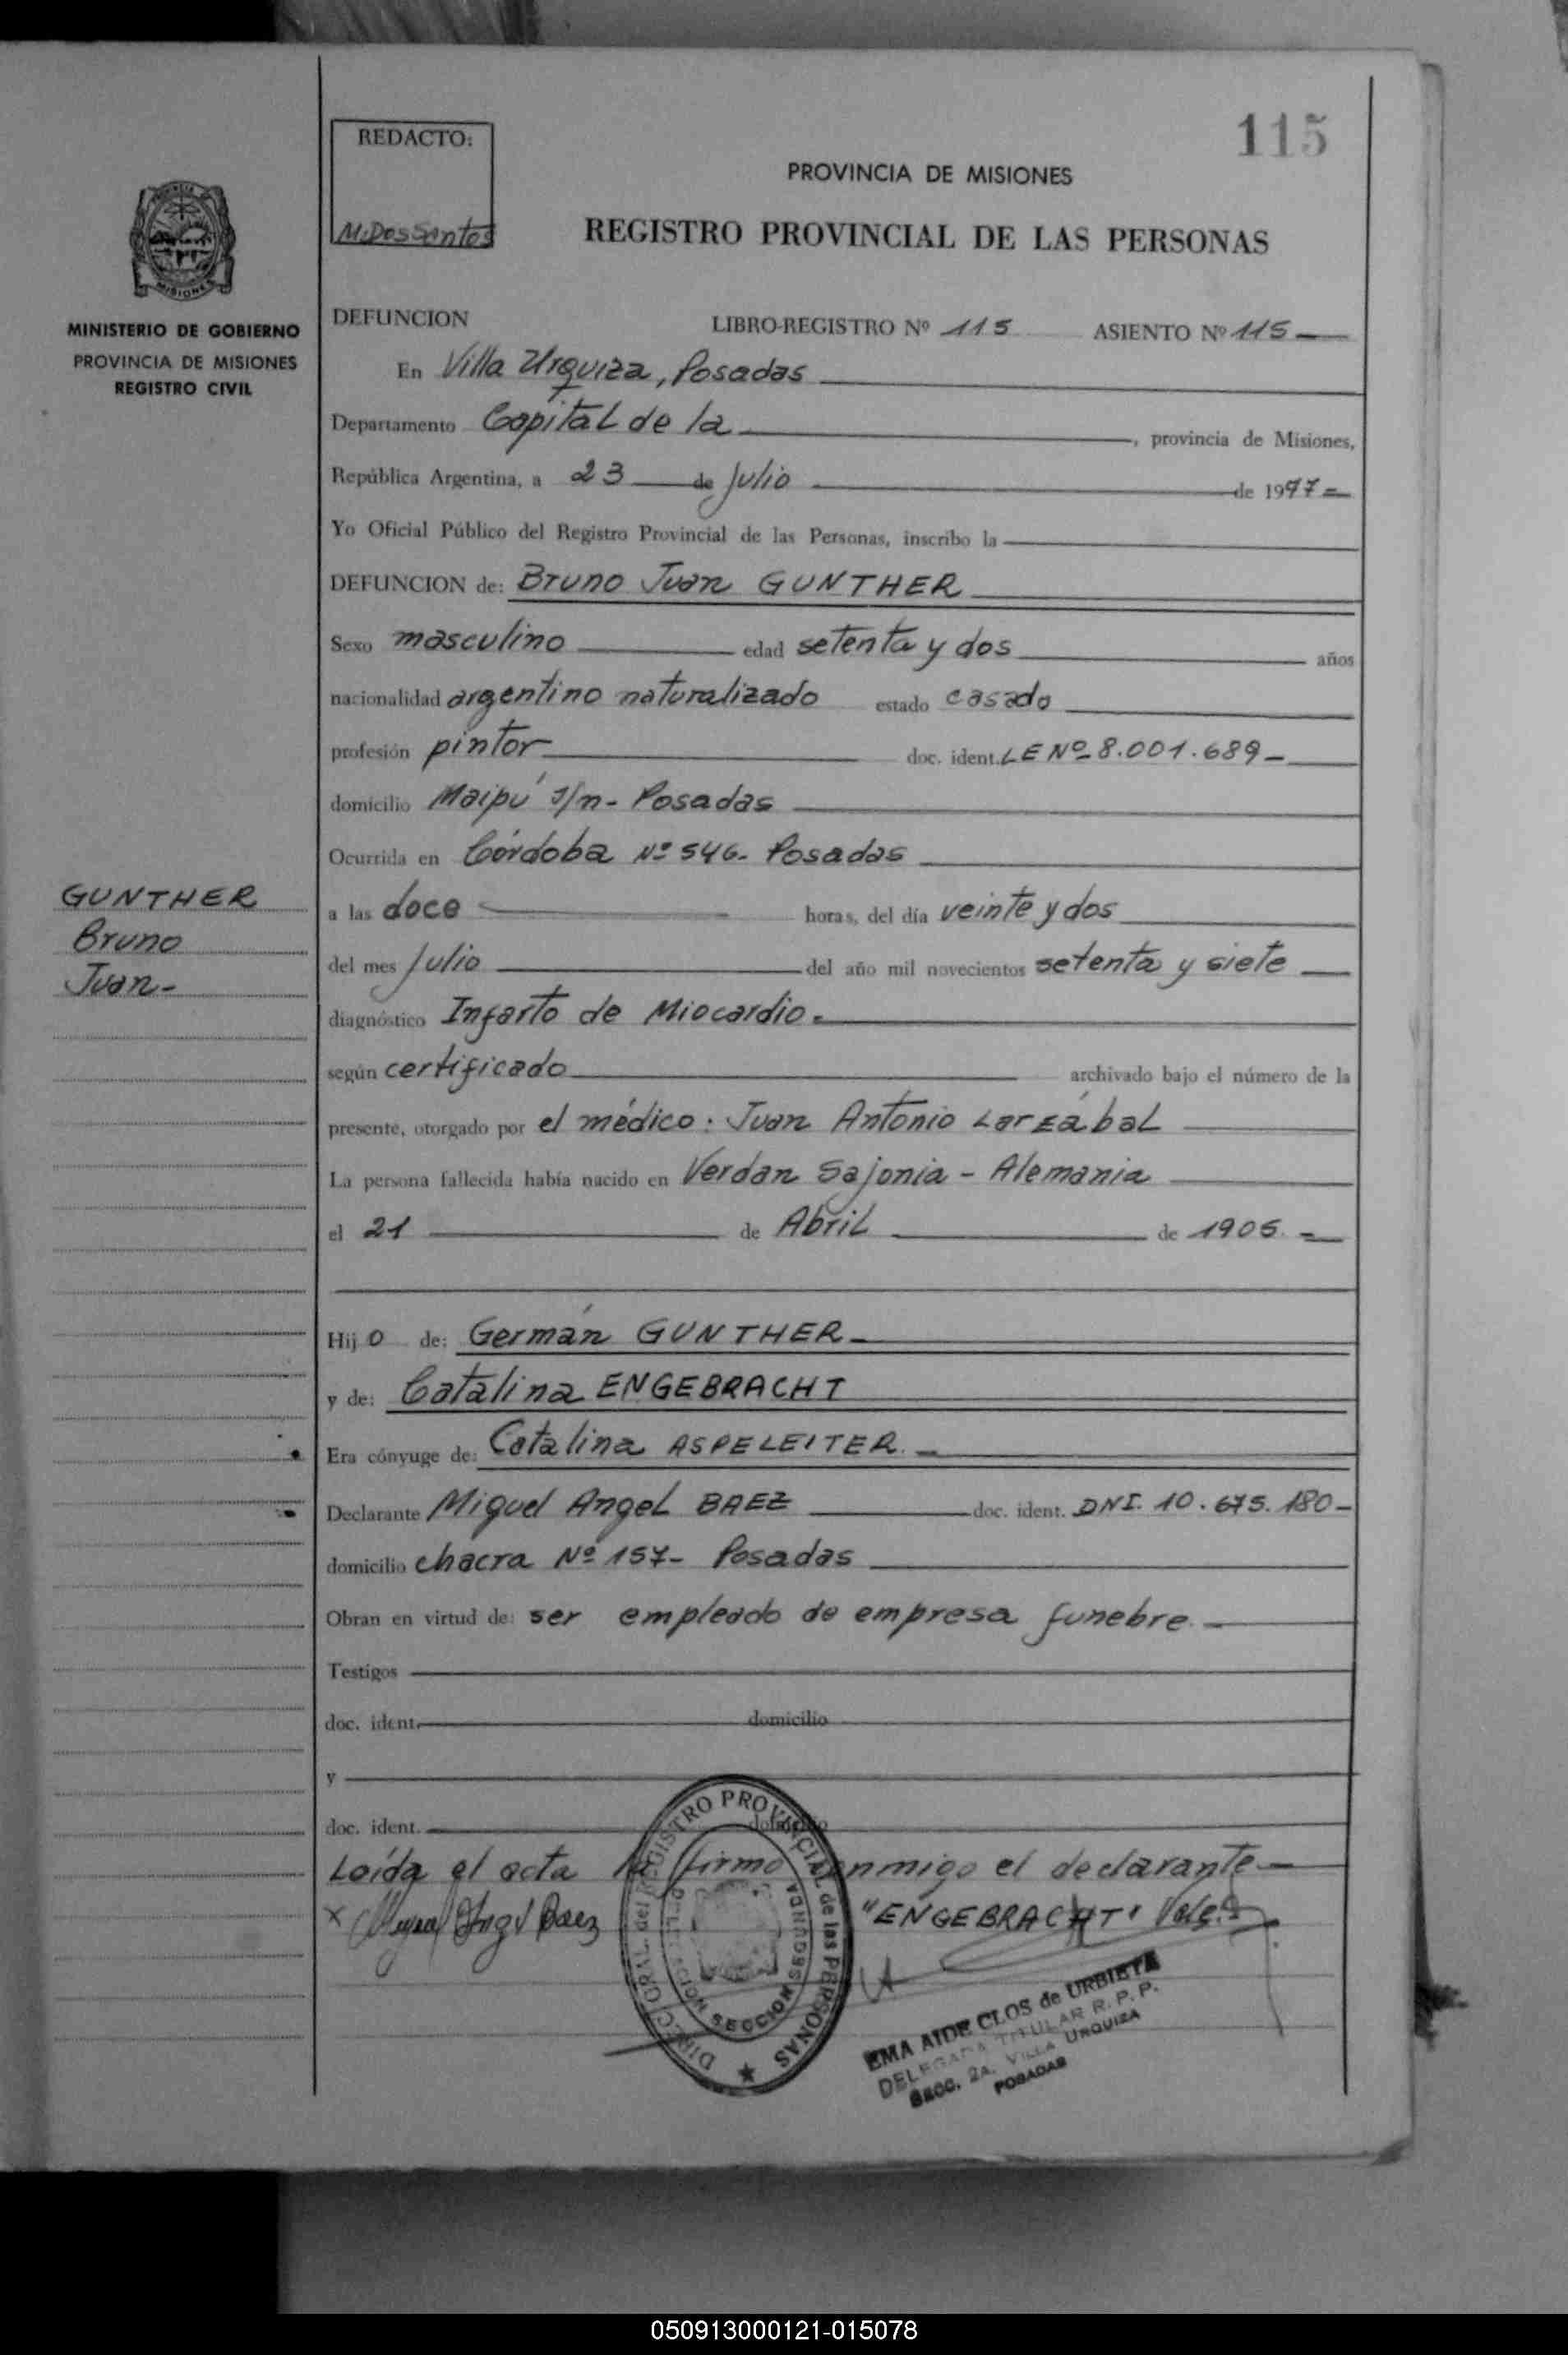 115
REDACTO:
M. Dos Santos
PROVINCIA DE MISIONES
REGISTRO PROVINCIAL DE LAS PERSONAS
MISIONES
MINISTERIO DE GOBIERNO
PROVINCIA DE MISIONES
REGISTRO CIVIL
DEFUNCION LIBRO-REGISTRO Nº 115 ASIENTO Nº 115
En Villa Urquiza, Posadas
Departamento Capital de la , provincia de Misiones,
República Argentina, a 23 de julio de 1977=
Yo Oficial Público del Registro Provincial de las Personas, inscribo la
DEFUNCION de: Bruno Juan GUNTHER
Sexo masculino edad setenta y dos años
nacionalidad argentino naturalizado estado casado
profesión pintor doc. ident. LE Nº 8.001.689-
domicilio Maipú s/n- Posadas
Ocurrida en Córdoba Nº 546- Posadas
GUNTHER
Bruno
Juan-
a las doce horas, del día veinte y dos
del mes julio del año mil novecientos setenta y siete
diagnóstico Infarto de Miocardio.
según certificado archivado bajo el número de la
presente, otorgado por el médico: Juan Antonio Larzábal
La persona fallecida había nacido en Verdan Sajonia - Alemania
el 21 de Abril de 1905.=
Hijo de: Germán GUNTHER
y de: Catalina ENGEBRACHT
Era cónyuge de: Catalina ASPELEITER.
Declarante Miguel Angel BAEZ doc. ident. DNI. 10.675.180-
domicilio chacra Nº 157- Posadas
Obran en virtud de: ser empleado de empresa funebre.
Testigos
doc. ident. domicilio
y
doc. ident. domicilio
Leída el acta la firmo conmigo el declarante
x Miguel Angel Baez "ENGEBRACHT" Vale.
DIREC. GRAL. del REGISTRO PROVINCIAL de las PERSONAS
SECCION SEGUNDA
EMA AIDE CLOS de URBIETA
DELEGADA TITULAR R. P. P.
SECC. 2A. VILLA URQUIZA
POSADAS
050913000121-015078